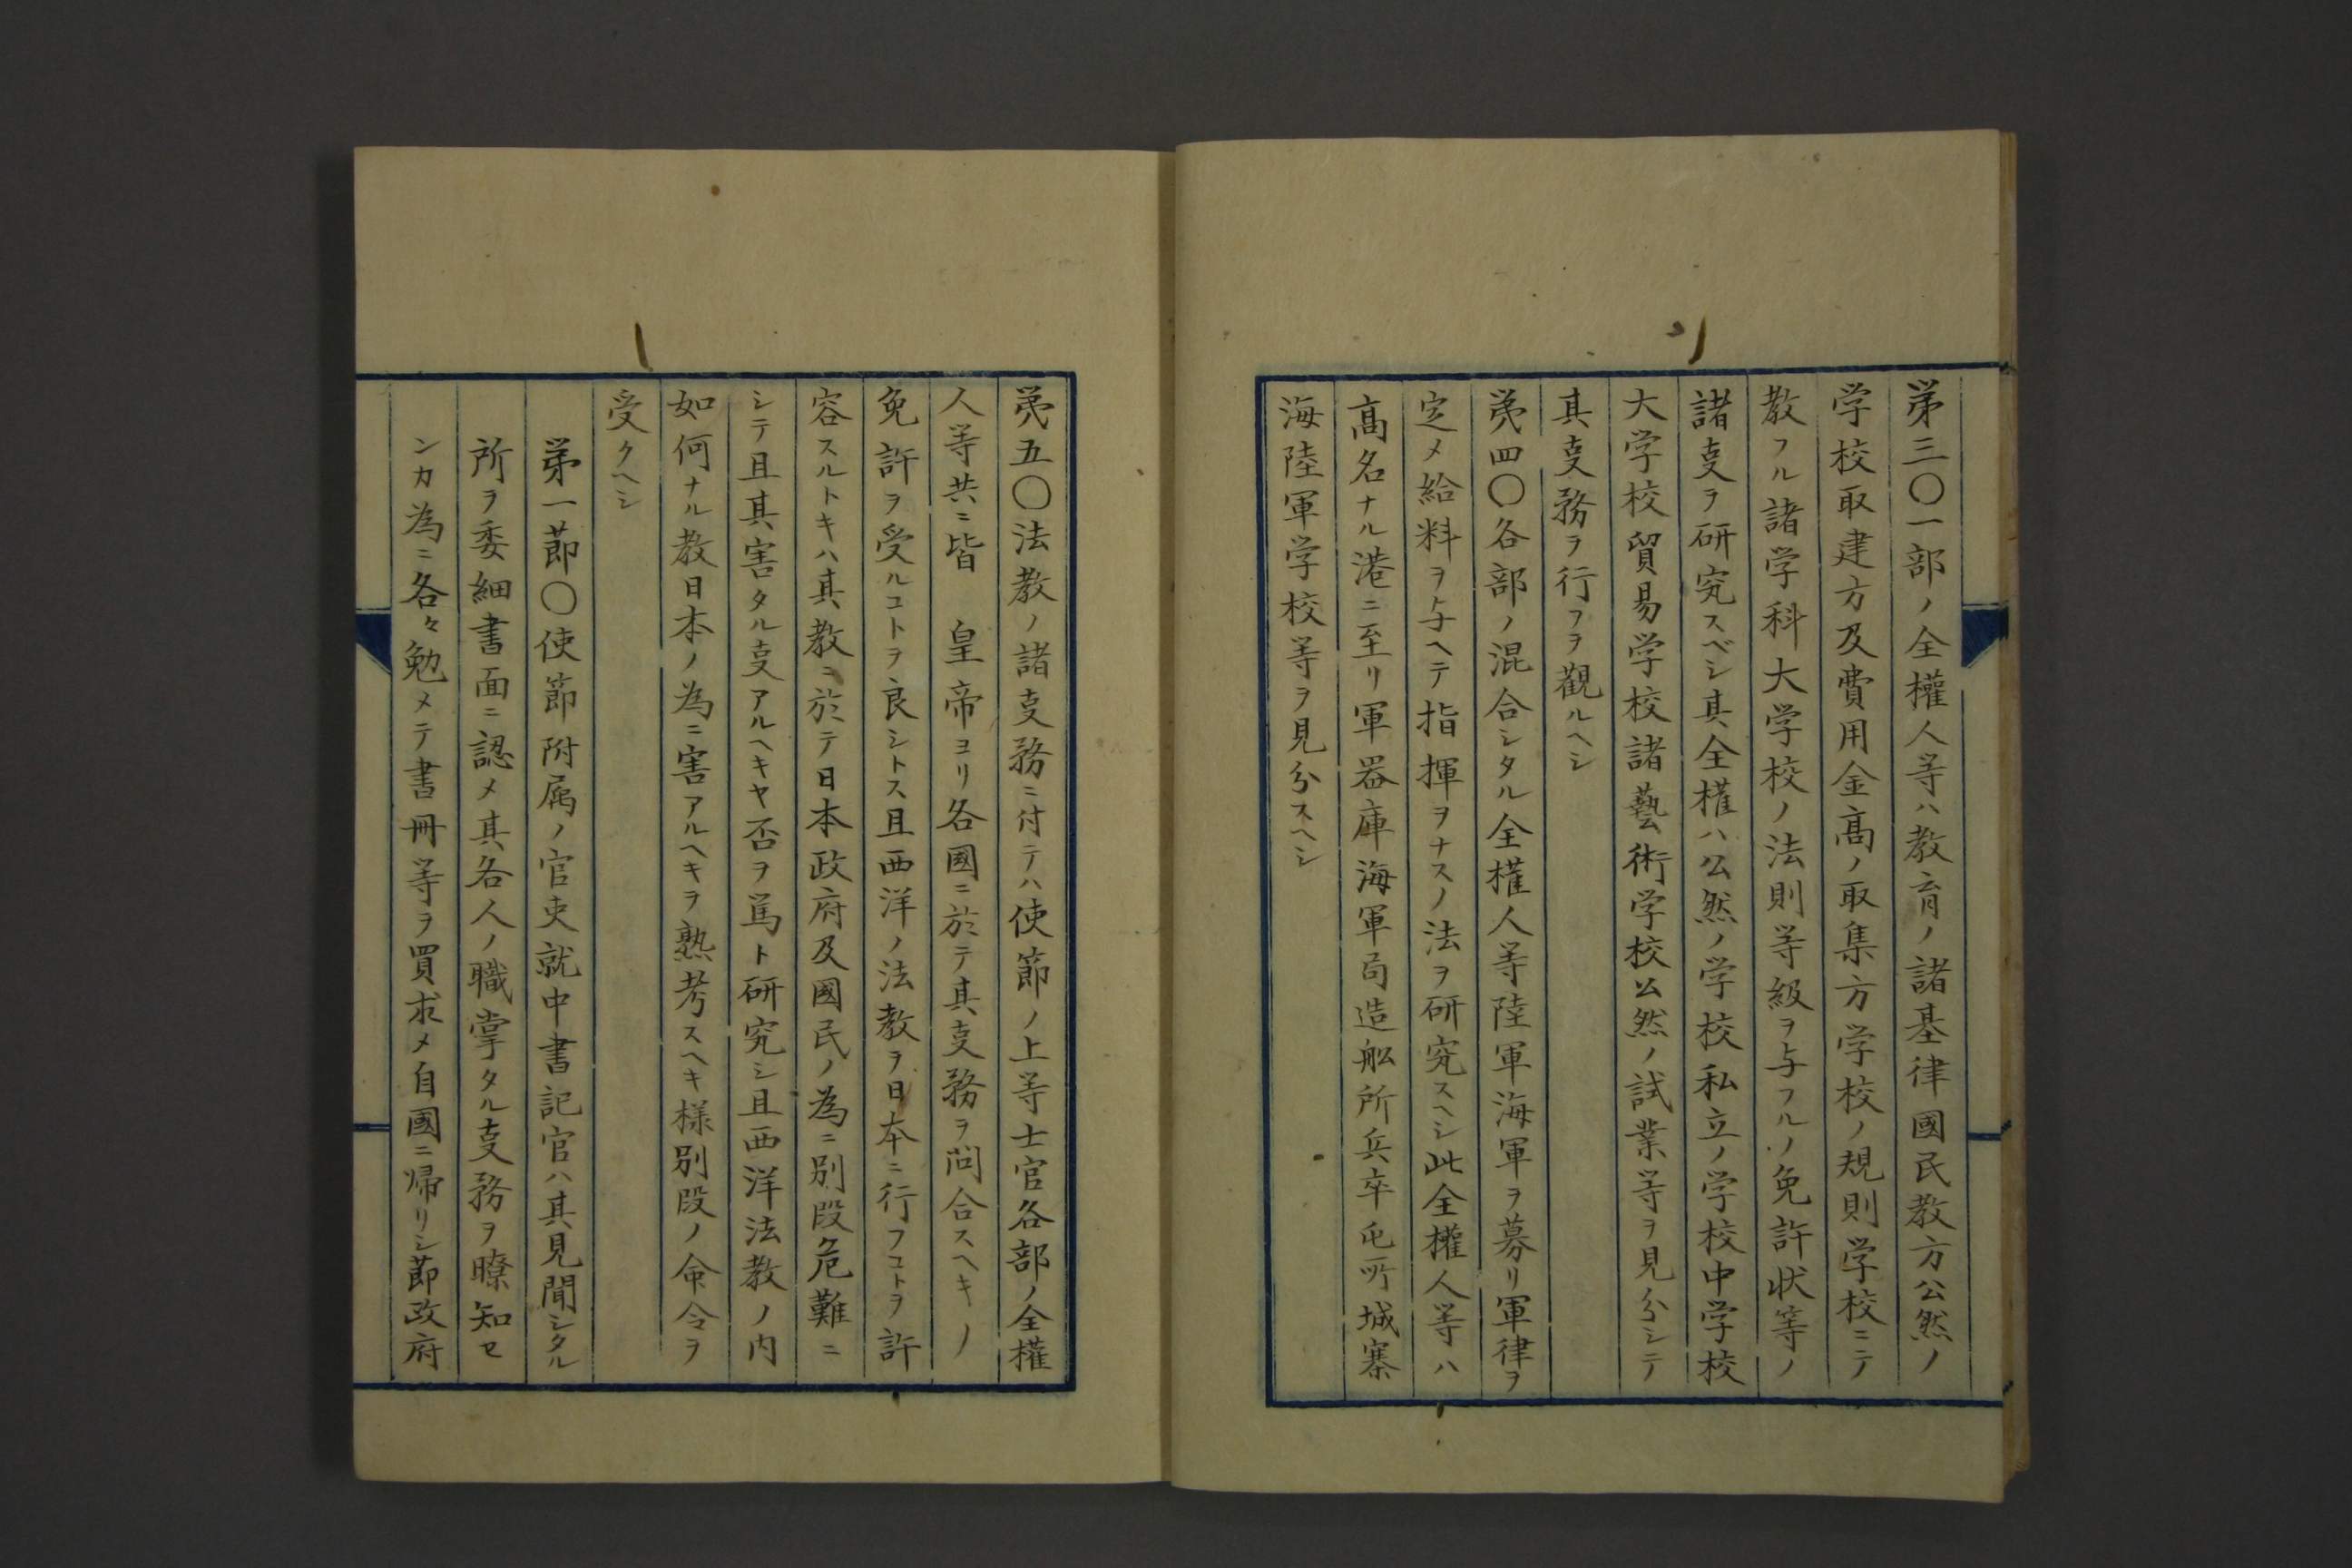 第三〇一部ノ全權人等ハ教育ノ諸基律國民教方公然ノ
学校取建方及費用金高ノ取集方学校ノ規則学校ニテ
教フル諸学科大学校ノ法則等級ヲ与フルノ免許状等ノ
諸叓ヲ研究スベシ其全權ハ公然ノ学校私立ノ学校中学校
大学校貿易学校諸藝術学校公然ノ試業等ヲ見分シテ
其叓務ヲ行フヲ觀ルヘシ
第四〇各部ノ混合シタル全權人等陸軍海軍ヲ募リ軍律ヲ
定メ給料ヲ与ヘテ指揮ヲナスノ法ヲ研究スヘシ此全權人等ハ
髙名ナル港ニ至リ軍器庫海軍局造舩所兵卒屯所城寨
海陸軍学校等ヲ見分スヘシ
第五〇法教ノ諸叓務ニ付テハ使節ノ上等士官各部ノ全權
人等共ニ皆　皇帝ヨリ各國ニ於テ其叓務ヲ問合スヘキノ
免許ヲ受ルコトヲ良シトス且西洋ノ法教ヲ日本ニ行フコトヲ許
容スルトキハ其教ニ於テ日本政府及國民ノ為ニ別段危難ニ
シテ且其害タル叓アルヘキヤ否ヲ篤ト研究シ且西洋法教ノ内
如何ナル教日本ノ為ニ害アルヘキヲ熟考スヘキ様別段ノ命令ヲ
受クヘシ
第一節〇使節附属ノ官吏就中書記官ハ其見聞シタル
所ヲ委細書面ニ認メ其各人ノ職掌タル叓務ヲ瞭知セ
ンカ為ニ各々勉メテ書冊等ヲ買求メ自國ニ帰リシ節政府